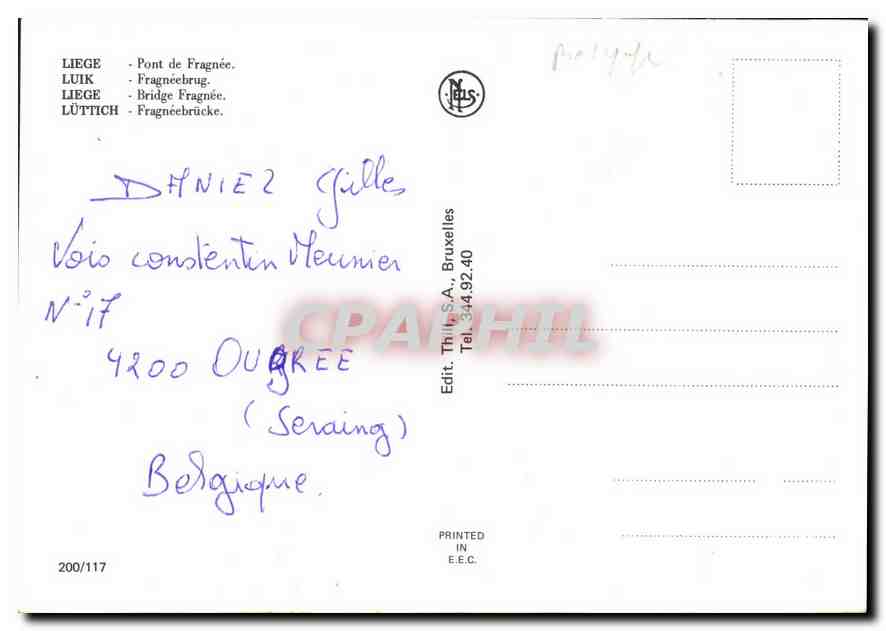 LIEGE - Pont de Fragnée.
LUIK - Fragnéebrug.
LIEGE - Bridge Fragnée.
LÜTTICH - Fragnéebrücke.
NELS
DANIEL Gilles
Vois constentin Meunier
N° 17
4200 OUGREE
(Seraing)
Belgique.
Edit. Thill, S.A., Bruxelles
Tel. 344.92.40
CPAPHIL
PRINTED
IN
E.E.C.
200/117